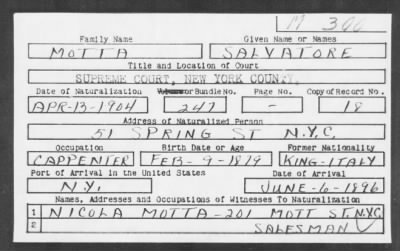 M 300
Family Name Given Name or Names
MOTTA SALVATORE
Title and Location of Court
SUPREME COURT, NEW YORK COUNTY,
Date of Naturalization Volume or Bundle No. Page No. Copy of Record No.
APR-13-1904 247 - 18
Address of Naturalized Person
51 SPRING ST N.Y.C.
Occupation Birth Date or Age Former Nationality
CARPENTER FEB-9-1879 KING-ITALY
Port of Arrival in the United States Date of Arrival
N.Y. JUNE-6-1896
Names, Addresses and Occupations of Witnesses To Naturalization
1 NICOLA MOTTA-201 MOTT ST. N.Y.C.
2 SALESMAN